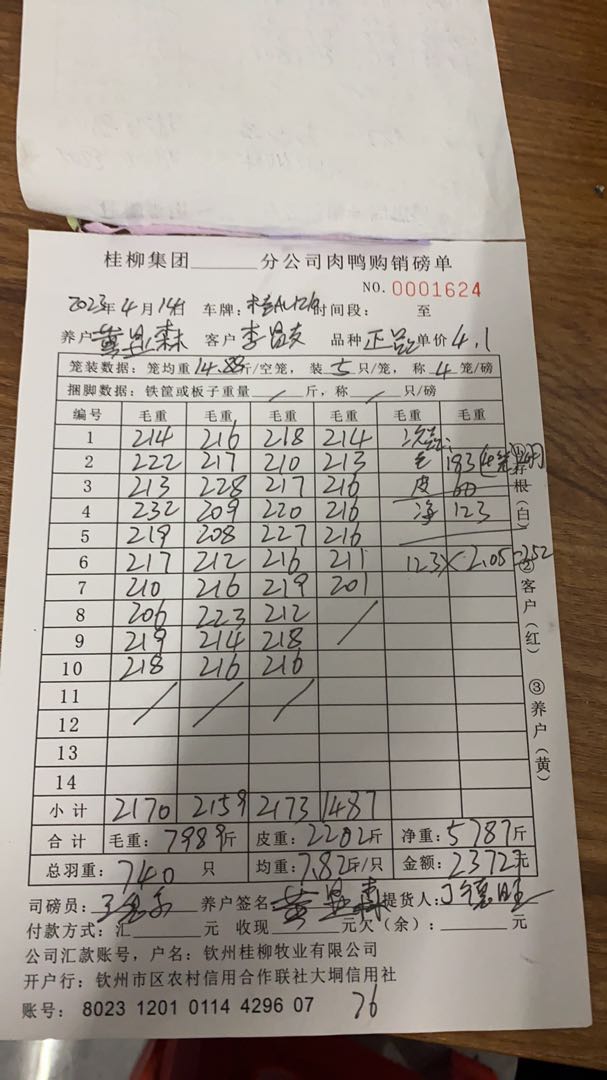 桂柳集团______分公司肉鸭购销磅单
NO. 0001624
2023年 4月 14日 车牌: 时间段: 至
养户 黄显森 客户 李 品种 正品 单价 4.1
笼装数据:笼均重14.88斤/空笼,装 5 只/笼,称 4 笼/磅
捆脚数据:铁筐或板子重量 / 斤,称 / 只/磅
编号 毛重 毛重 毛重 毛重 毛重 毛重
1 214 216 218 214 次品:
2 222 217 210 213 毛 183
3 213 228 217 216 皮 60
4 232 209 220 216 净 123
5 219 208 227 216
6 217 212 216 211 123×2.05=252
7 210 216 219 201
8 206 223 212 /
9 219 214 218
10 218 216 216
11 / / /
12
13
14
小计 2170 2159 2173 1487
合计 毛重:7989斤 皮重:2202斤 净重:5787斤
总羽重:740 只 均重:7.82斤/只 金额:2372元
司磅员: 养户签名: 黄显森 提货人:
付款方式:汇______元 收现______元欠(余):______元
公司汇款账号,户名:钦州桂柳牧业有限公司
开户行:钦州市区农村信用合作联社大垌信用社
账号:8023 1201 0114 4296 07
76
①存根(白)
②客户(红)
③养户(黄)